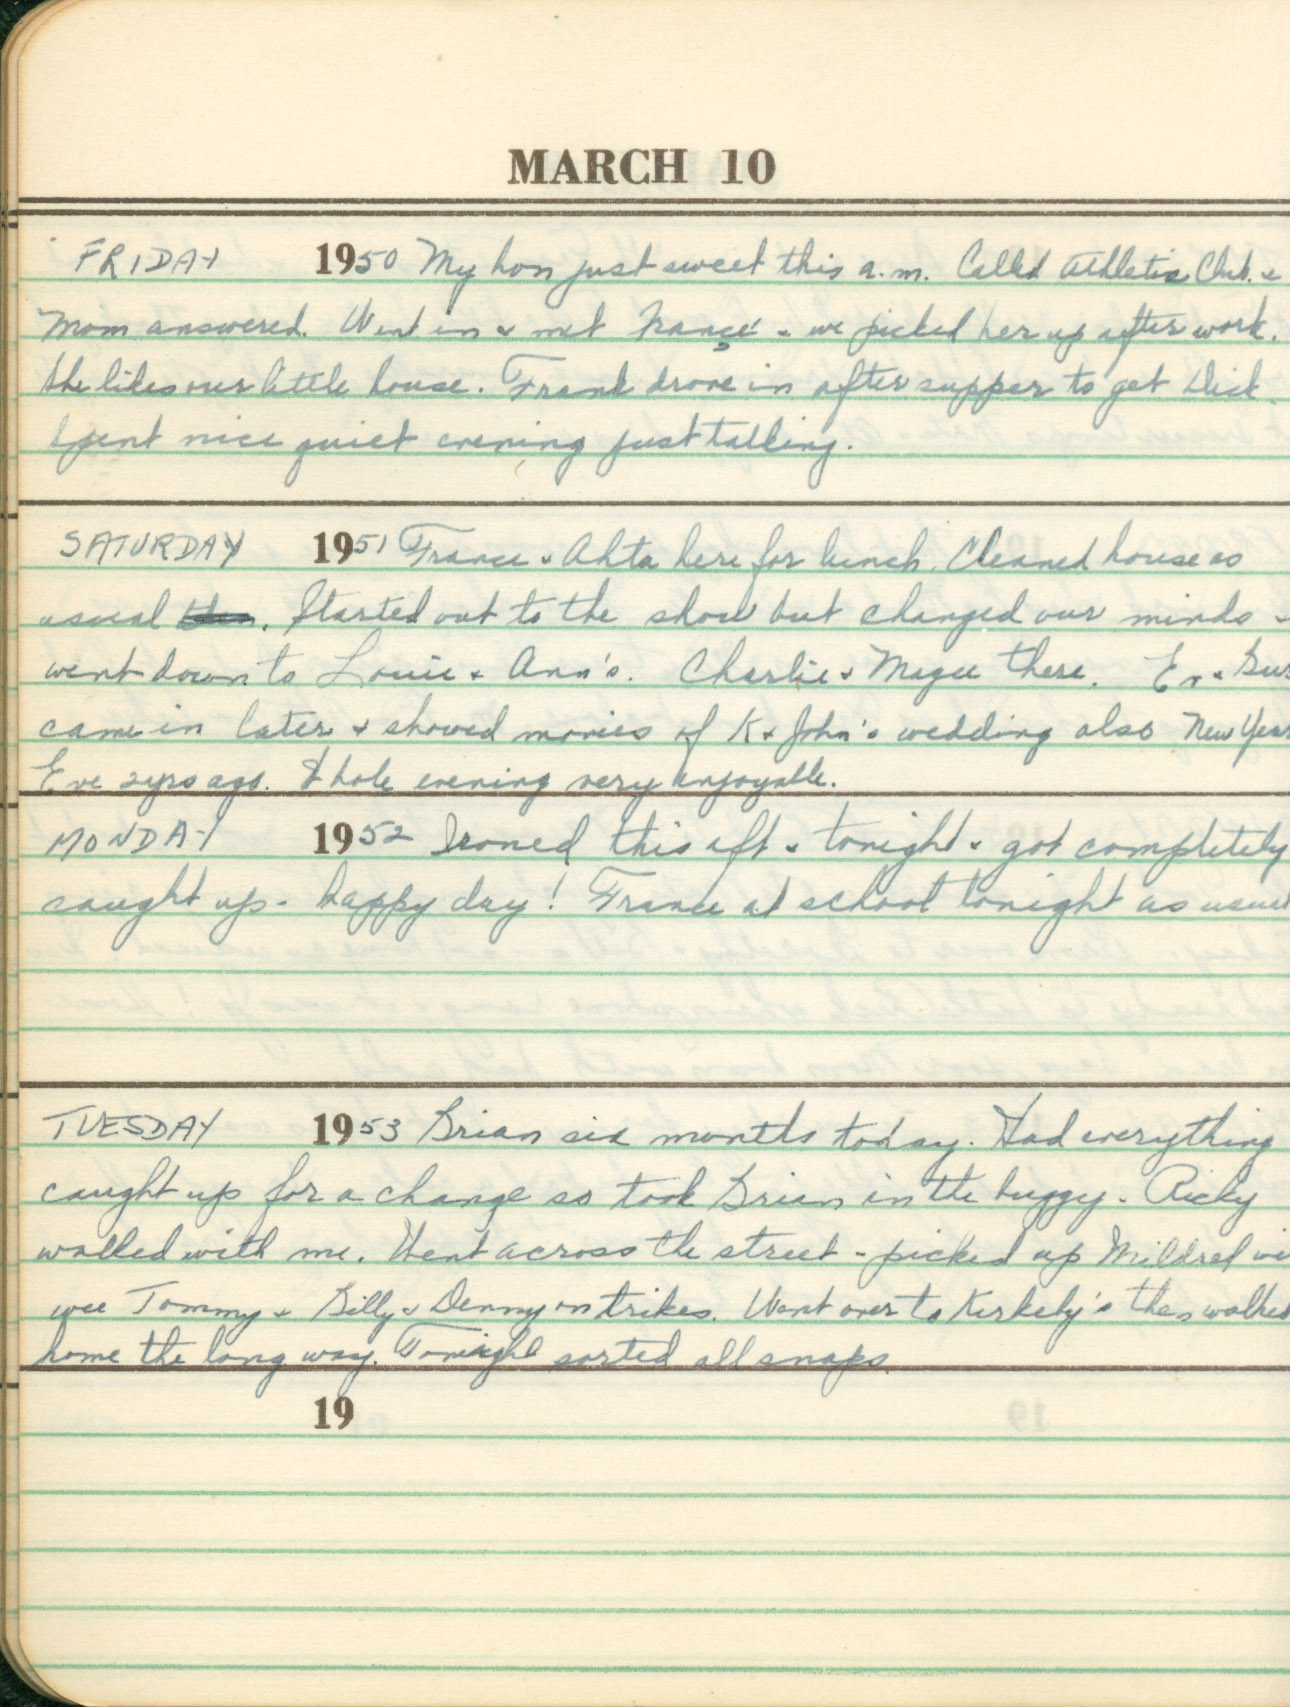 MARCH 10
FRIDAY 1950 My hon just sweet this a.m. Called Athletic Club &
Mom answered. Went in & met France & we picked her up after work.
She likes our little house. Frank drove in after supper to get Dick.
Spent nice quiet evening just talking.
SATURDAY 1951 France & Ahta here for lunch. Cleaned house as
usual. Started out to the show but changed our minds &
went down to Louie & Ann's. Charlie & Magee there. Ev & Gus
came in later & showed movies of K & John's wedding also New Year
Eve 2 yrs ago. Whole evening very enjoyable.
MONDAY 1952 Ironed this aft & tonight & got completely
caught up - happy day! France at school tonight as usual
TUESDAY 1953 Brian six months today. Had everything
caught up for a change so took Brian in the buggy - Ricky
walked with me. Went across the street - picked up Mildred wi
wee Tommy & Billy & Denny on trikes. Went over to Kerkeby's then walked
home the long way. Tonight sorted all snaps.
19